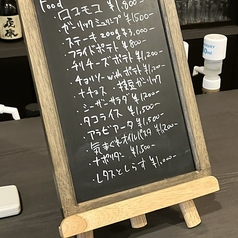 Food
・ロコモコ ¥1,800-
・ガーリックシュリンプ ¥1,500-
・ステーキ 200g ¥3,000-
・フライドポテト ¥800-
・チリチーズポテト ¥1,200-
・チョリソー withポテト ¥1,200-
・ナチョス
・シーザーサラダ ¥1,200-
・タコライス ¥1,500-
・アラビアータ ¥1,500-
・気まぐれオイルパスタ ¥1,200-
・ナポリタン ¥1,500-
・レタスとしらす ¥1,000-